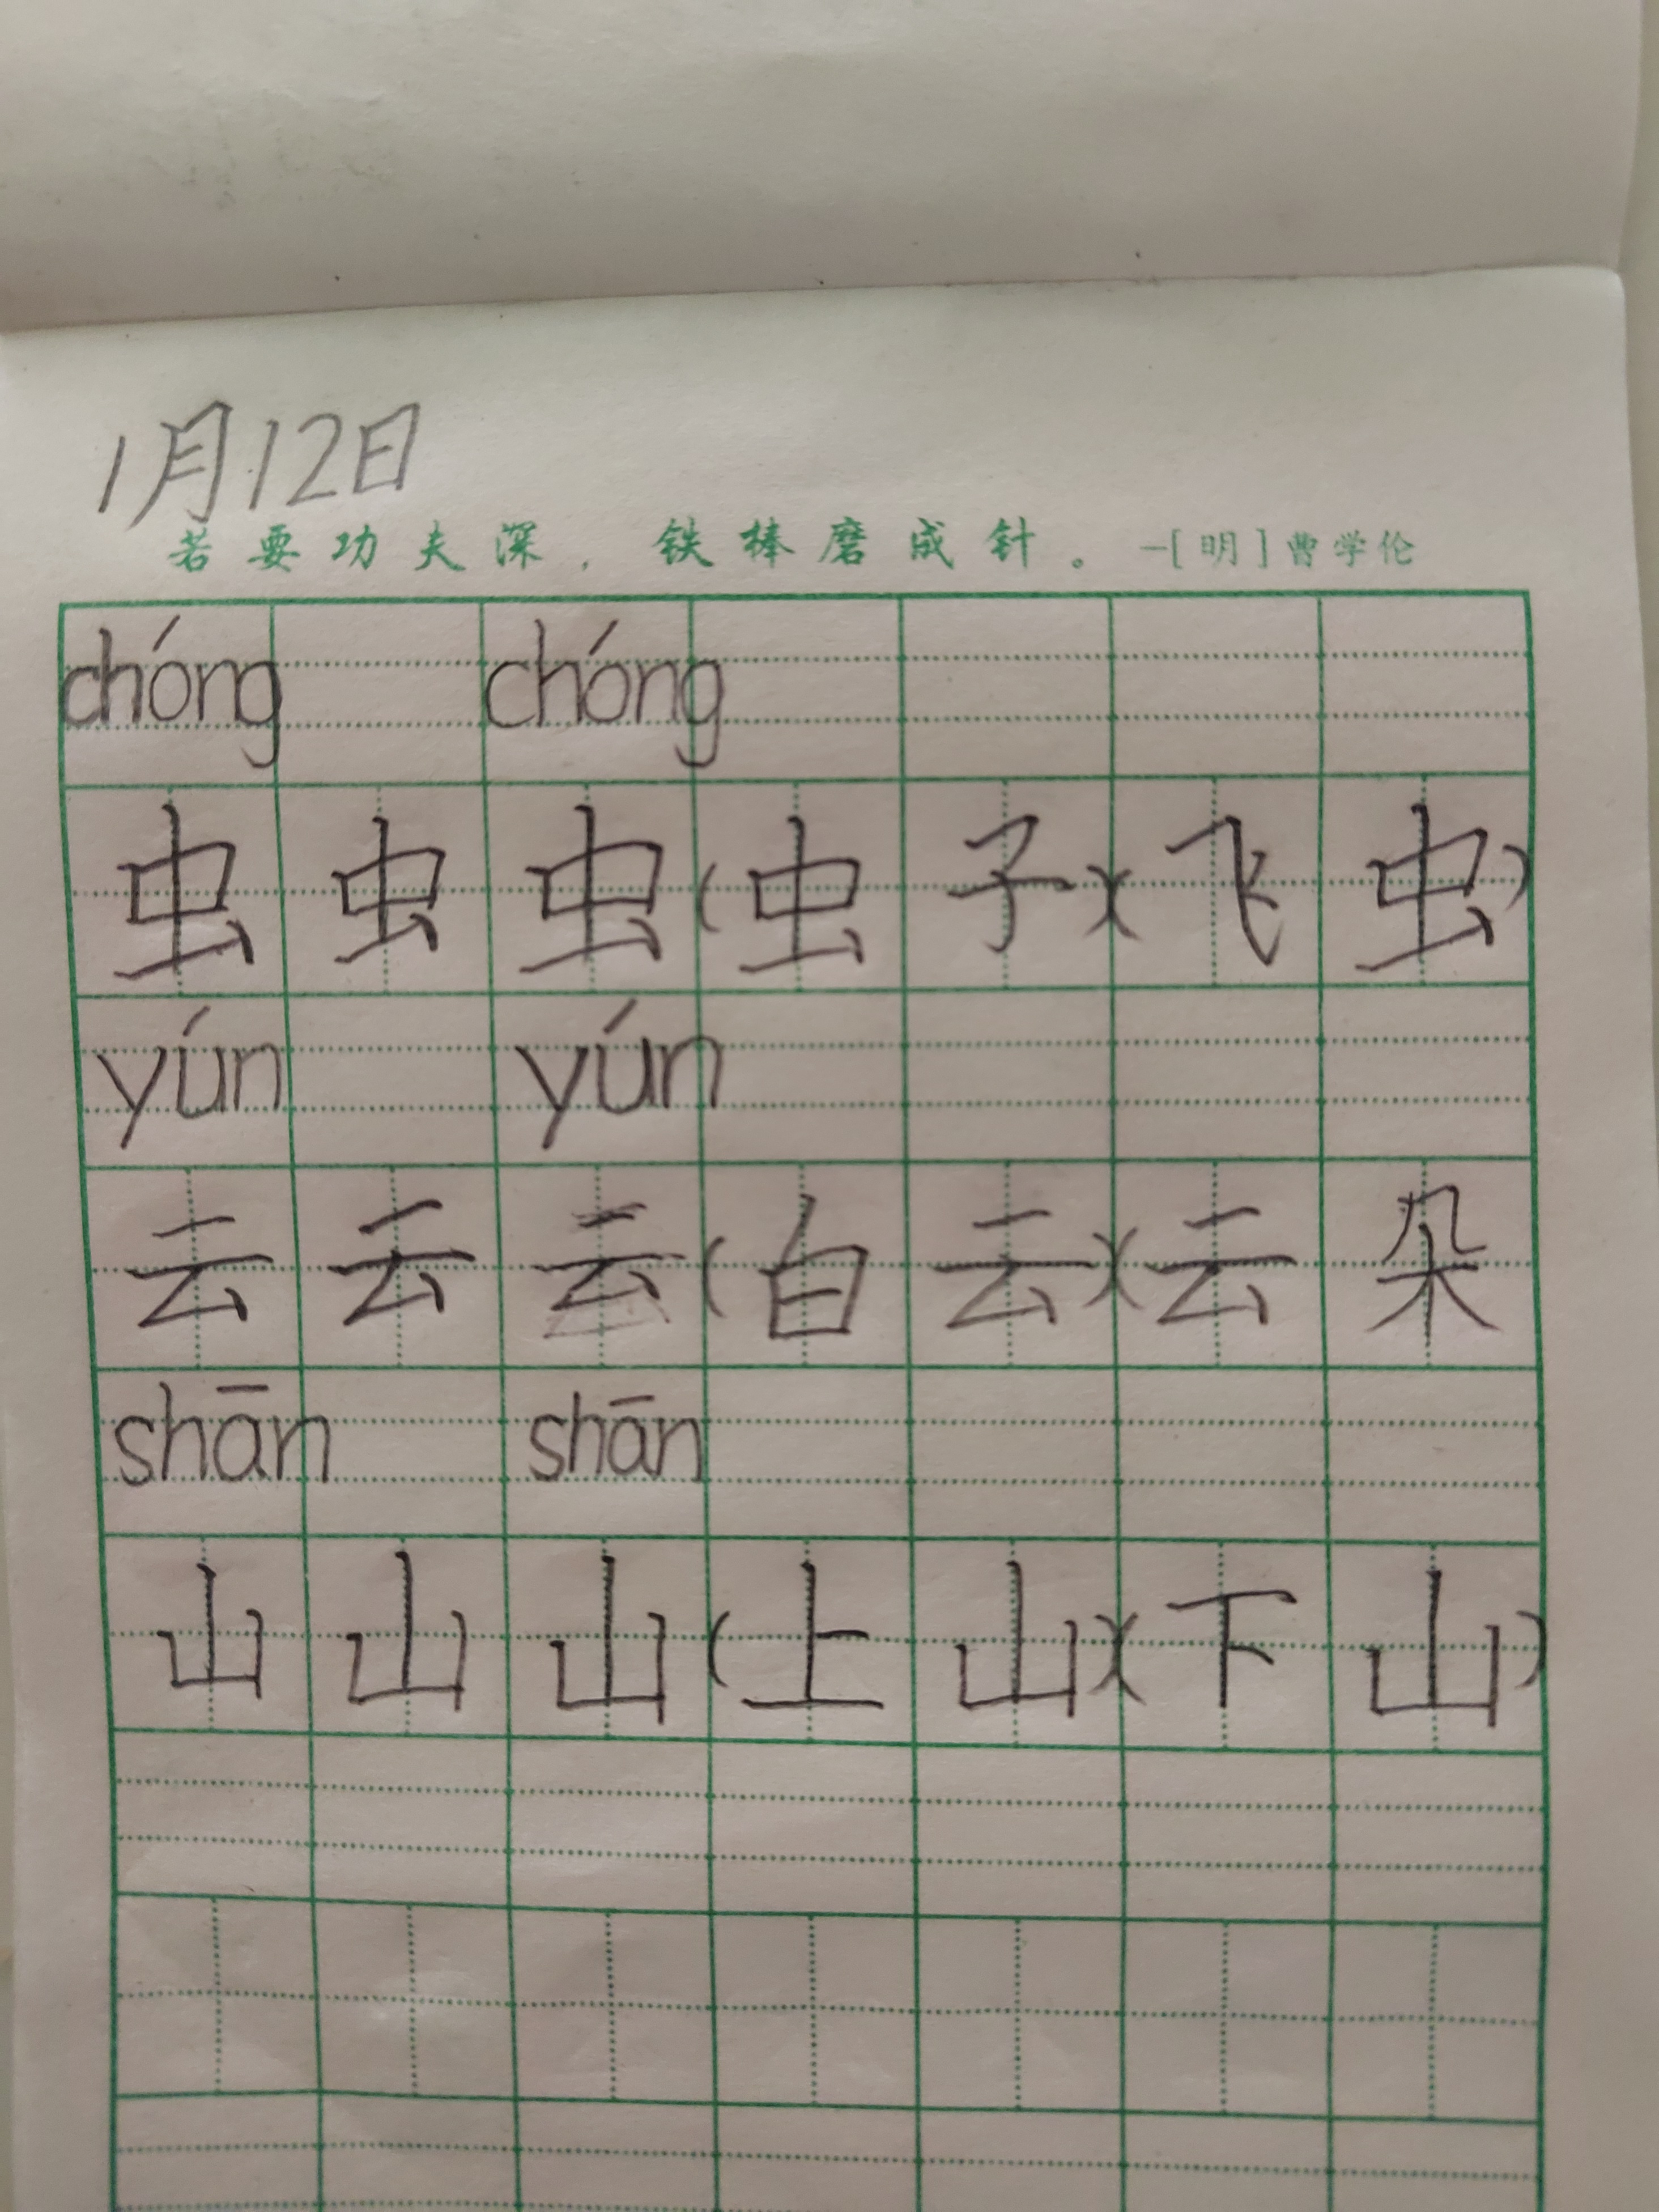 1月12日
若要功夫深，铁棒磨成针。—[明]曹学伦
chóng chóng
虫虫虫(虫子)(飞虫)
yún yún
云云云(白云)(云朵
shān shān
山山山(上山)(下山)